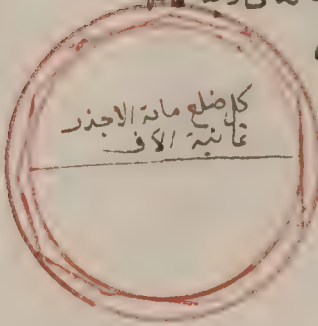 كل ضلع مائة الاجذر
ثمانية الاف